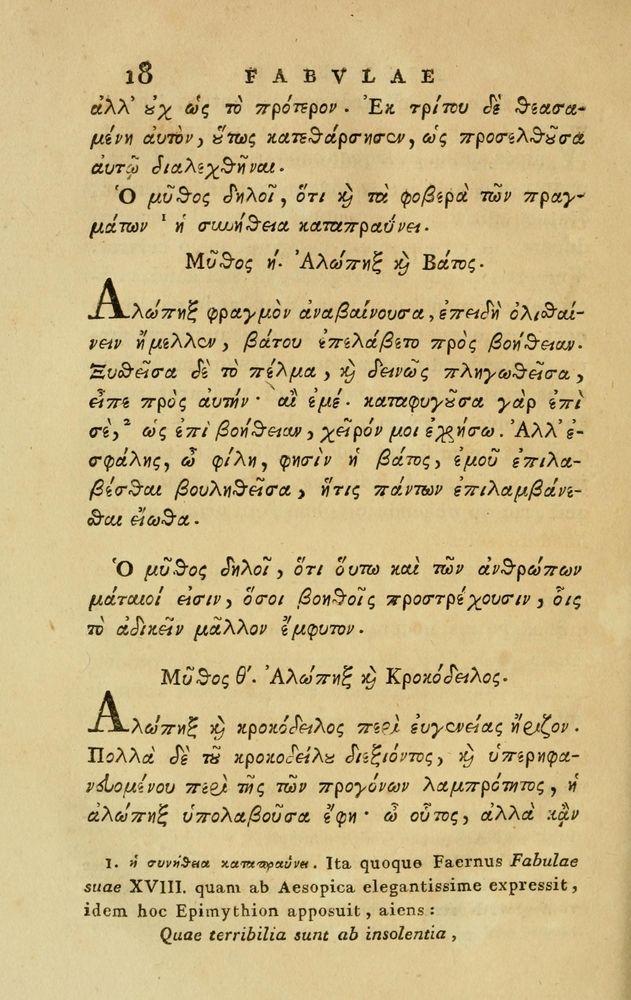 18 FABVLAE
ἀλλ' ȣ̓χ ὡς τὸ πρότερον. Ἐκ τρίτου δὲ θεασα-
μένη αὐτὸν, ȣ̔́τως κατεθάρσησεν, ὡς προσελθȣ͂σα
αὐτῷ διαλεχθῆναι.
Ὁ μῦθος δηλοῖ, ὅτι ϗ̀ τὰ φοβερὰ τῶν πραγ-
μάτων ¹ ἡ συνήθεια καταπραΰνει.
Μῦθος ή. Ἀλώπηξ ϗ̀ Βάτος.
Ἀλώπηξ φραγμὸν ἀναβαίνουσα, ἐπειδὴ ὀλισθαί-
νειν ἤμελλεν, βάτου ἐπελάβετο πρὸς βοήθειαν.
Ξυσθεῖσα δὲ τὸ πέλμα, ϗ̀ δεινῶς πληγωθεῖσα,
εἶπε πρὸς αὐτήν· αἲ ἐμέ. καταφυγȣ͂σα γὰρ ἐπὶ
σὲ,² ὡς ἐπὶ βοήθειαν, χεῖρόν μοι ἐχρήσω. Ἀλλ' ἐ-
σφάλης, ὦ φίλη, φησὶν ἡ βάτος, ἐμοῦ ἐπιλα-
βέσθαι βουληθεῖσα, ἥτις πάντων ἐπιλαμβάνε-
σθαι εἴωθα.
Ὁ μῦθος δηλοῖ, ὅτι ὅυτω καὶ τῶν ἀνθρώπων
μάταιοί εἰσιν, ὅσοι βοηθοῖς προστρέχουσιν, οἷς
τὸ ἀδικεῖν μᾶλλον ἔμφυτον.
Μῦθος θ'. Ἀλώπηξ ϗ̀ Κροκόδειλος.
Ἀλώπηξ ϗ̀ κροκόδειλος περὶ ἐυγενείας ἤριζον.
Πολλὰ δὲ τȣ͂ κροκοδείλȣ διεξιόντος, ϗ̀ ὑπερηφα-
νευομένου περὶ τῆς τῶν προγόνων λαμπρότητος, ἡ
ἀλώπηξ ὑπολαβοῦσα ἔφη· ὦ οὗτος, ἀλλὰ κἂν
1. ἡ συνήθεια καταπραΰνει. Ita quoque Faernus Fabulae
suae XVIII. quam ab Aesopica elegantissime expressit,
idem hoc Epimythion apposuit, aiens:
Quae terribilia sunt ab insolentia,